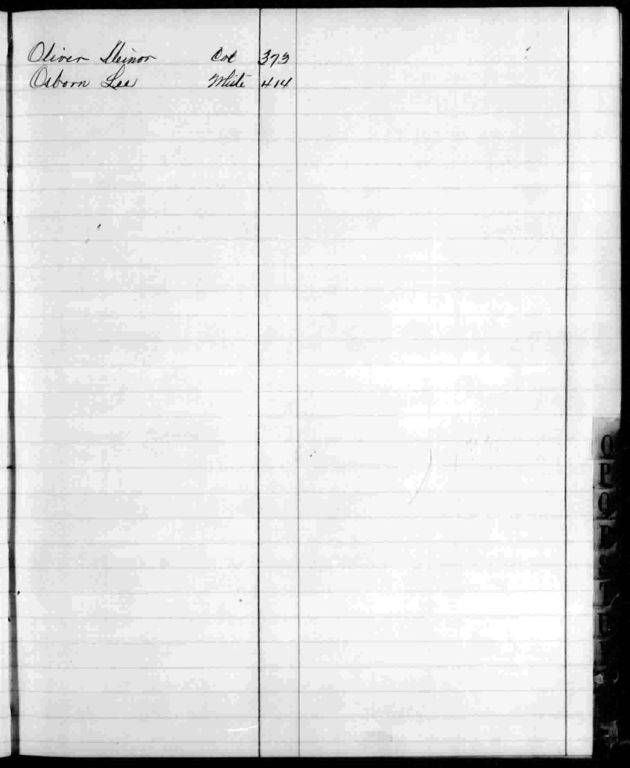 Oliver Minor Col 373
Osborn Lee White 414
O
P
Q
R
S
T
U